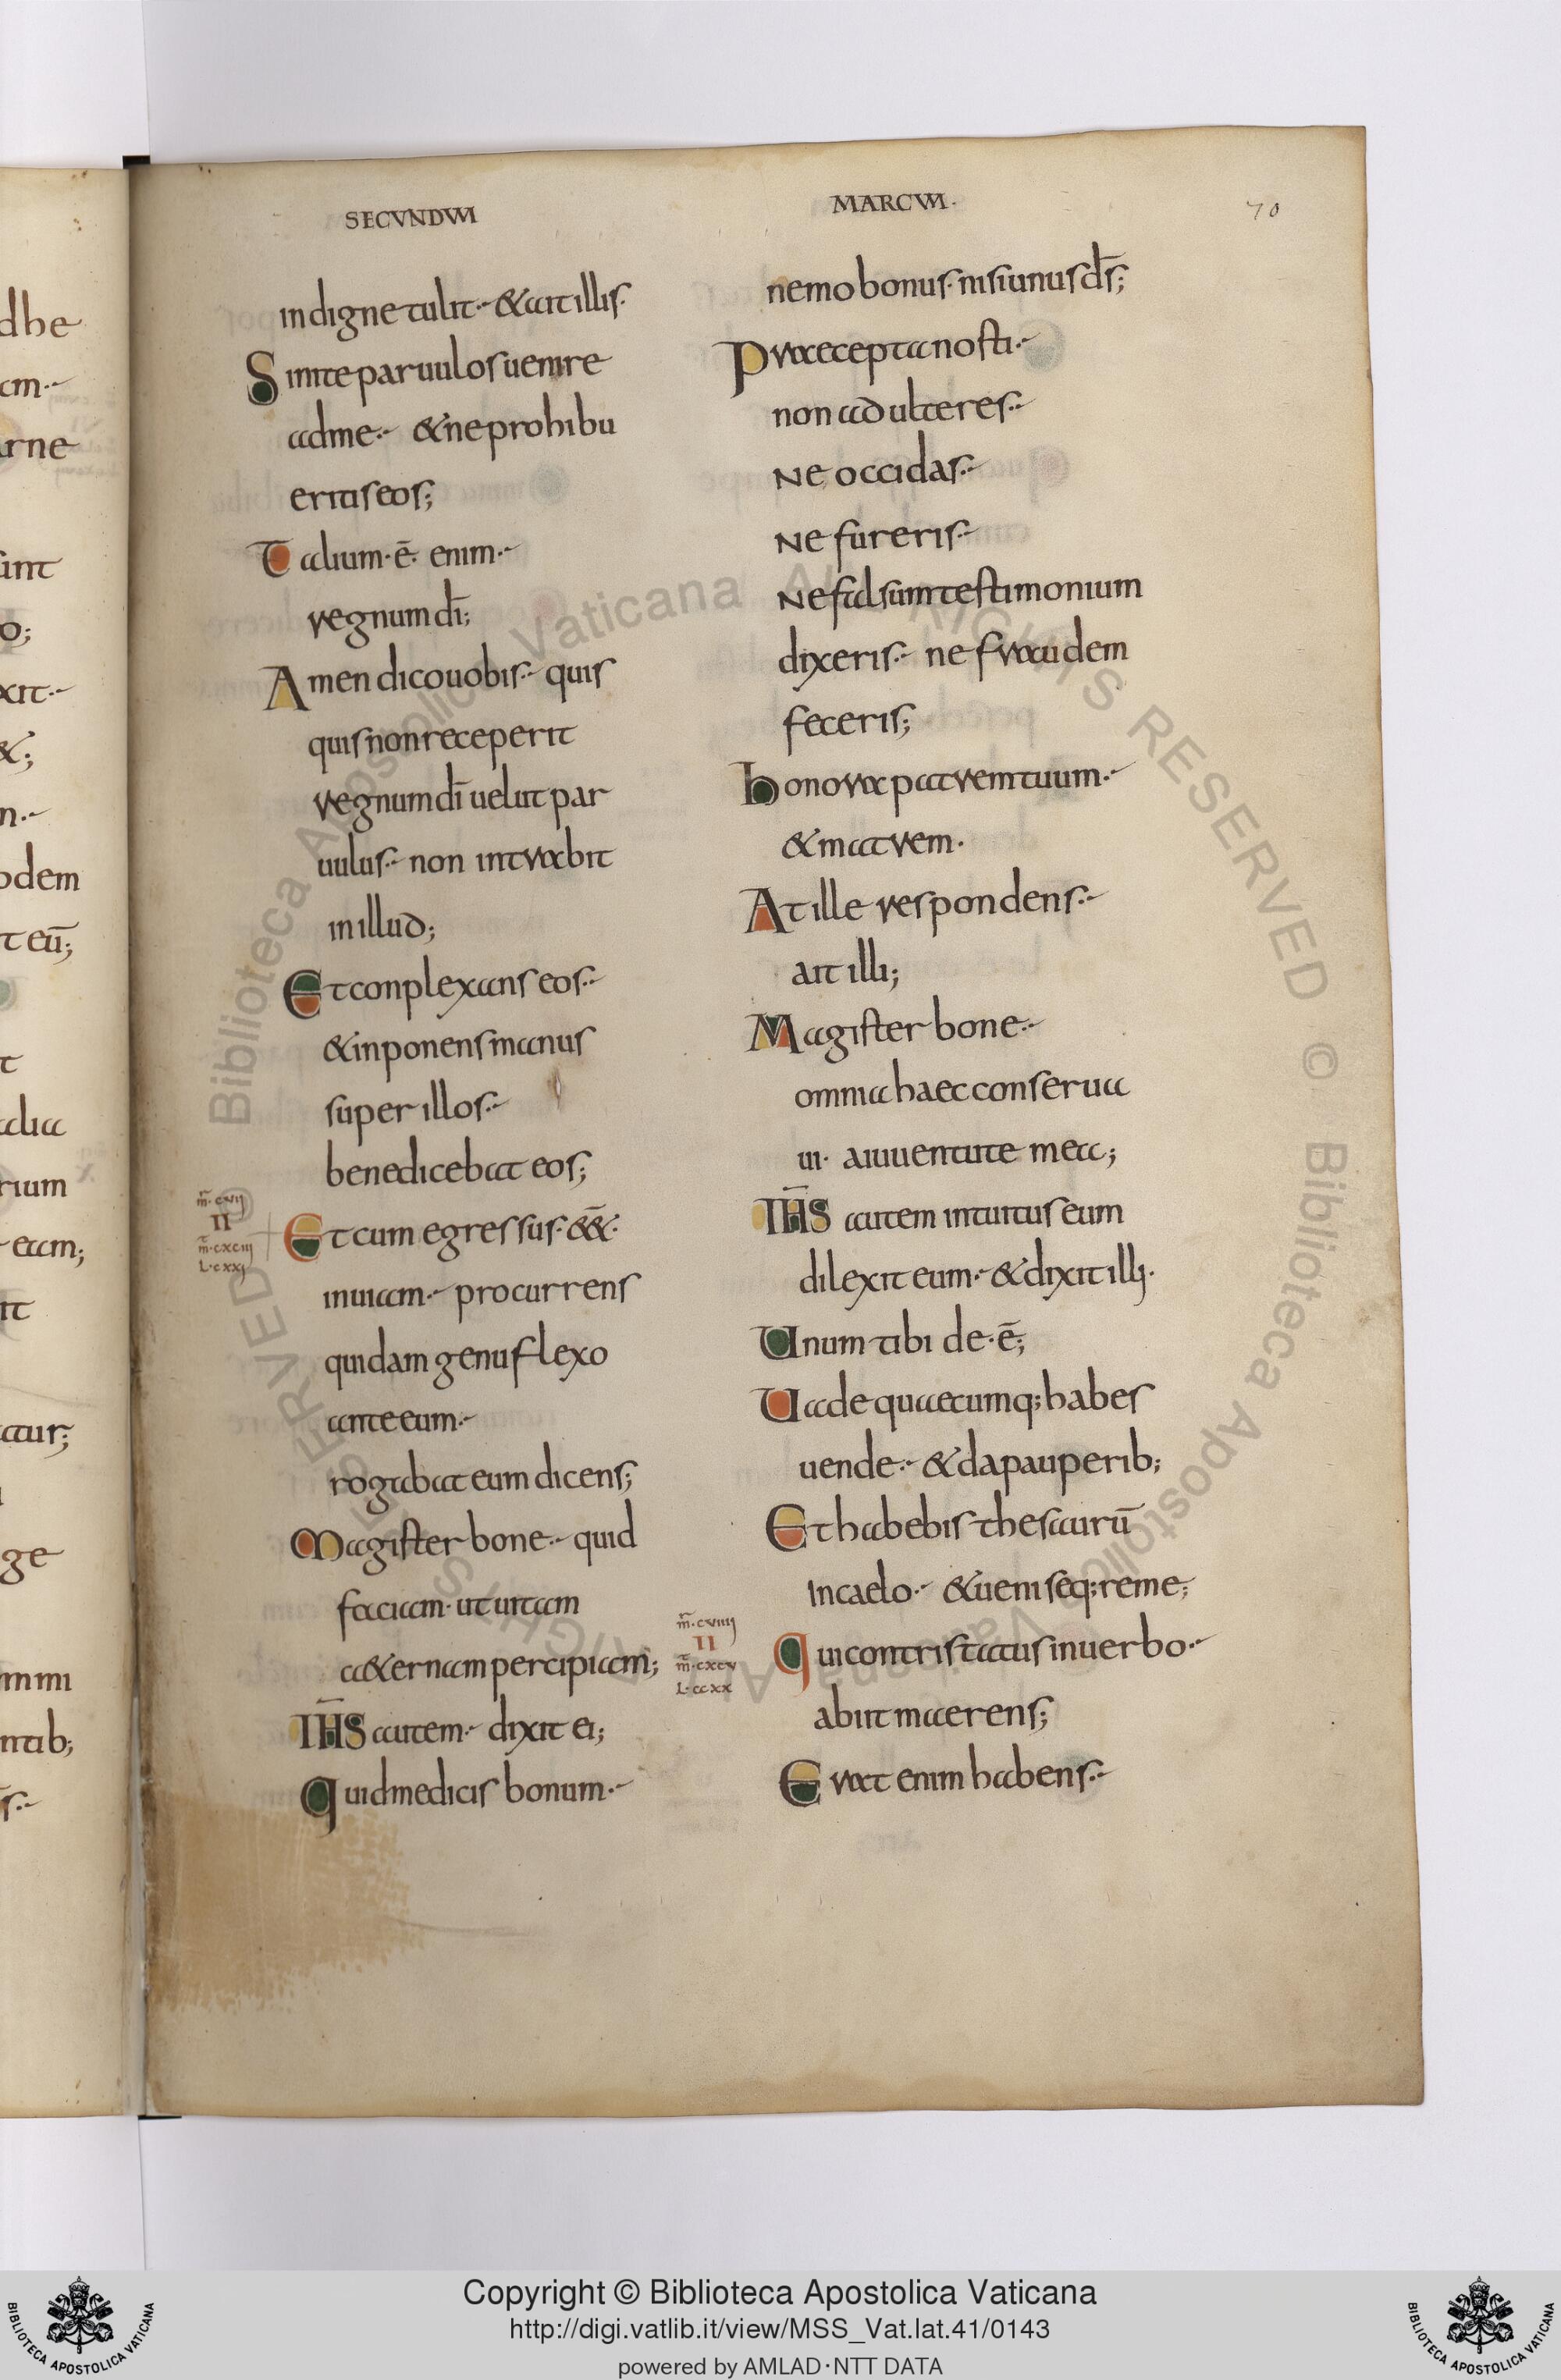 SECVNDUM
indigne tulit·- & ait illis·
Sinite paruulos uenire
ad me·- & ne prohibu
eritis eos;
Talium· ē· enim·-
regnum dī;
Amen dico uobis·- quis
quis non receperit
regnum dī uelut par
uulus·- non intrabit
in illud;
Et conplexans eos·-
& inponens manus
super illos·-
benedicebat eos;
m̄·cvij
II
m̄·cxciij
L·cxxj
Et cum egressus· &&̄·
in uiam·- procurrens
quidam genu flexo
ante eum·-
rogabat eum dicens;
Magister bone·- quid
faciam· ut uitam
a&ernam percipiam;
IH̄S autem·- dixit ei;
Quid me dicis bonum·-
MARCUM·
70
nemo bonus· nisi unus d̄s;
Praecepta nosti·-
non adulteres·-
Ne occidas·-
Ne fureris·-
Ne falsum testimonium
dixeris·- ne fraudem
feceris;
honora patrem tuum·-
& matrem·
At ille respondens·-
ait illi;
Magister bone·-
omnia haec conserua
ui· a iuuentute mea;
IH̄S autem intuitus eum
dilexit eum·- & dixit illj·
Unum tibi de·ē;
Uade quaecumq; habes
uende·- & da pauperib;
Et habebis thesaurū
In caelo·- & ueni seq;re me;
m̄·cviiij
II
m̄·cxcv
L·ccxx
qui contristatus in uerbo·-
abiit maerens;
Erat enim habens·-
dhe
am·-
arne
sunt
o;
xit·-
&;
n·-
odem
t eū;
t
alia
rium
eam;
it
atur;
ge
mmi
ntib;
s·-
Biblioteca Apostolica Vaticana ALL RIGHTS RESERVED ©
Copyright © Biblioteca Apostolica Vaticana
http://digi.vatlib.it/view/MSS_Vat.lat.41/0143
powered by AMLAD·NTT DATA
BIBLIOTECA APOSTOLICA VATICANA
BIBLIOTECA APOSTOLICA VATICANA